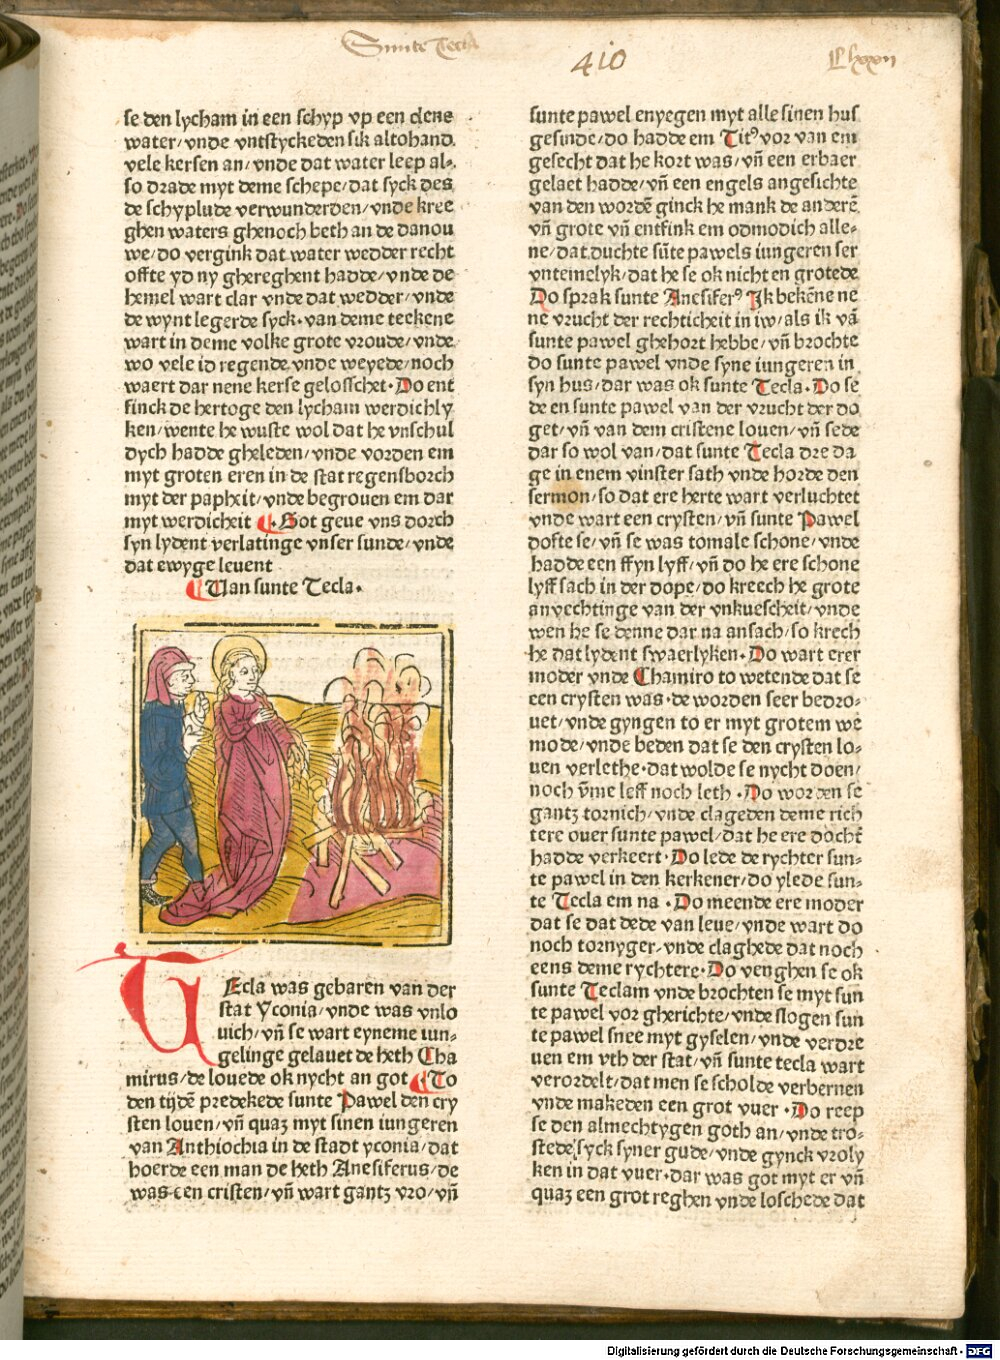 Sunte Tecla
410
Lxxxii
se den lycham in een schyp vp een clene
water/vnde vntstyckeden sik altohand.
vele kersen an/vnde dat water leep al⸗
so drade myt deme schepe/dat syck des
de schyplude verwunderden/vnde kree
ghen waters ghenoch beth an de danou
we/do vergink dat water wedder recht
offte yd ny ghereghent hadde/vnde de
hemel wart clar vnde dat wedder/vnde
de wynt legerde syck·van deme teekene
wart in deme volke grote vroude/vnde
wo vele id regende vnde weyede/noch
waert dar nene kerse gelosschet·Do ent
finck de hertoge den lycham werdichly
ken/wente he wuste wol dat he vnschul
dych hadde gheleden/vnde vorden em
myt groten eren in de stat regensborch
myt der paphxit/vnde begrouen em dar
myt werdicheit ¶·Got geue vns dorch
syn lydent verlatinge vnser sunde/vnde
dat ewyge leuent
¶Uan sunte Tecla·
TEcla was gebaren van der
stat Yconia/vnde was vnlo
uich/vñ se wart eyneme iun⸗
gelinge gelauet de heth Cha
mirus/de louede ok nycht an got ¶To
den tijdẽ predekede sunte Pawel den cry
sten louen/vñ quaz myt sinen iungeren
van Anthiochia in de stadt yconia/dat
hoerde een man de heth Anesiferus/de
was een cristen/vñ wart gantz vro/vñ
sunte pawel enyegen myt alle sinen hus
gesinde/do hadde em Titꝰ vor van em
gesecht dat he kort was/vñ een erbaer
gelaet hadde/vñ een engels angesichte
van den wordẽ ginck he mank de anderẽ
vñ grote vñ entfink em odmodich alle⸗
ne/dat duchte sũte pawels iungeren ser
vntemelyk/dat he se ok nicht en grotede
Do sprak sunte Anesiferꝰ Ik bekẽne ne
ne vrucht der rechticheit in iw/als ik vã
sunte pawel ghehort hebbe/vñ brochte
do sunte pawel vnde syne iungeren in
syn hus/dar was ok sunte Tecla·Do se
de en sunte pawel van der vrucht der do
get/vñ van dem cristene louen/vñ sede
dar so wol van/dat sunte Tecla dre da
ge in enem vinster sath vnde horde den
sermon/so dat ere herte wart verluchtet
vnde wart een crysten/vñ sunte Pawel
dofte se/vñ se was tomale schone/vnde
hadde een ffyn lyff/vñ do he ere schone
lyff sach in der dope/do kreech he grote
anvechtinge van der vnkuescheit/vnde
wen he se denne dar na ansach/so krech
he dat lydent swaerlyken·Do wart erer
moder vnde Chamiro to wetende dat se
een crysten was·de worden seer bedro⸗
uet/vnde gyngen to er myt grotem we
mode/vnde beden dat se den crysten lo⸗
uen verlethe·dat wolde se nycht doen/
noch v̄me leff noch leth ·Do worden se
gantz tornich/vnde clageden deme rich
tere ouer sunte pawel/dat he ere docht̄
hadde verkeert·Do lede de rychter sun⸗
te pawel in den kerkener/do ylede sun⸗
te Tecla em na ·Do meende ere moder
dat se dat dede van leue/vnde wart do
noch tornyger/vnde claghede dat noch
eens deme rychtere·Do venghen se ok
sunte Teclam vnde brochten se myt sun
te pawel vor gherichte/vnde slogen sun
te pawel snee myt gyselen/vnde verdre
uen em vth der stat/vñ sunte tecla wart
verordelt/dat men se scholde verbernen
vnde makeden een grot vuer ·Do reep
se den almechtygen goth an/vnde tro⸗
stede syck syner gude/vnde gynck vroly
ken in dat vuer·dar was got myt er vñ
quaz een grot reghen vnde loschede dat
Digitalisierung gefördert durch die Deutsche Forschungsgemeinschaft - DFG